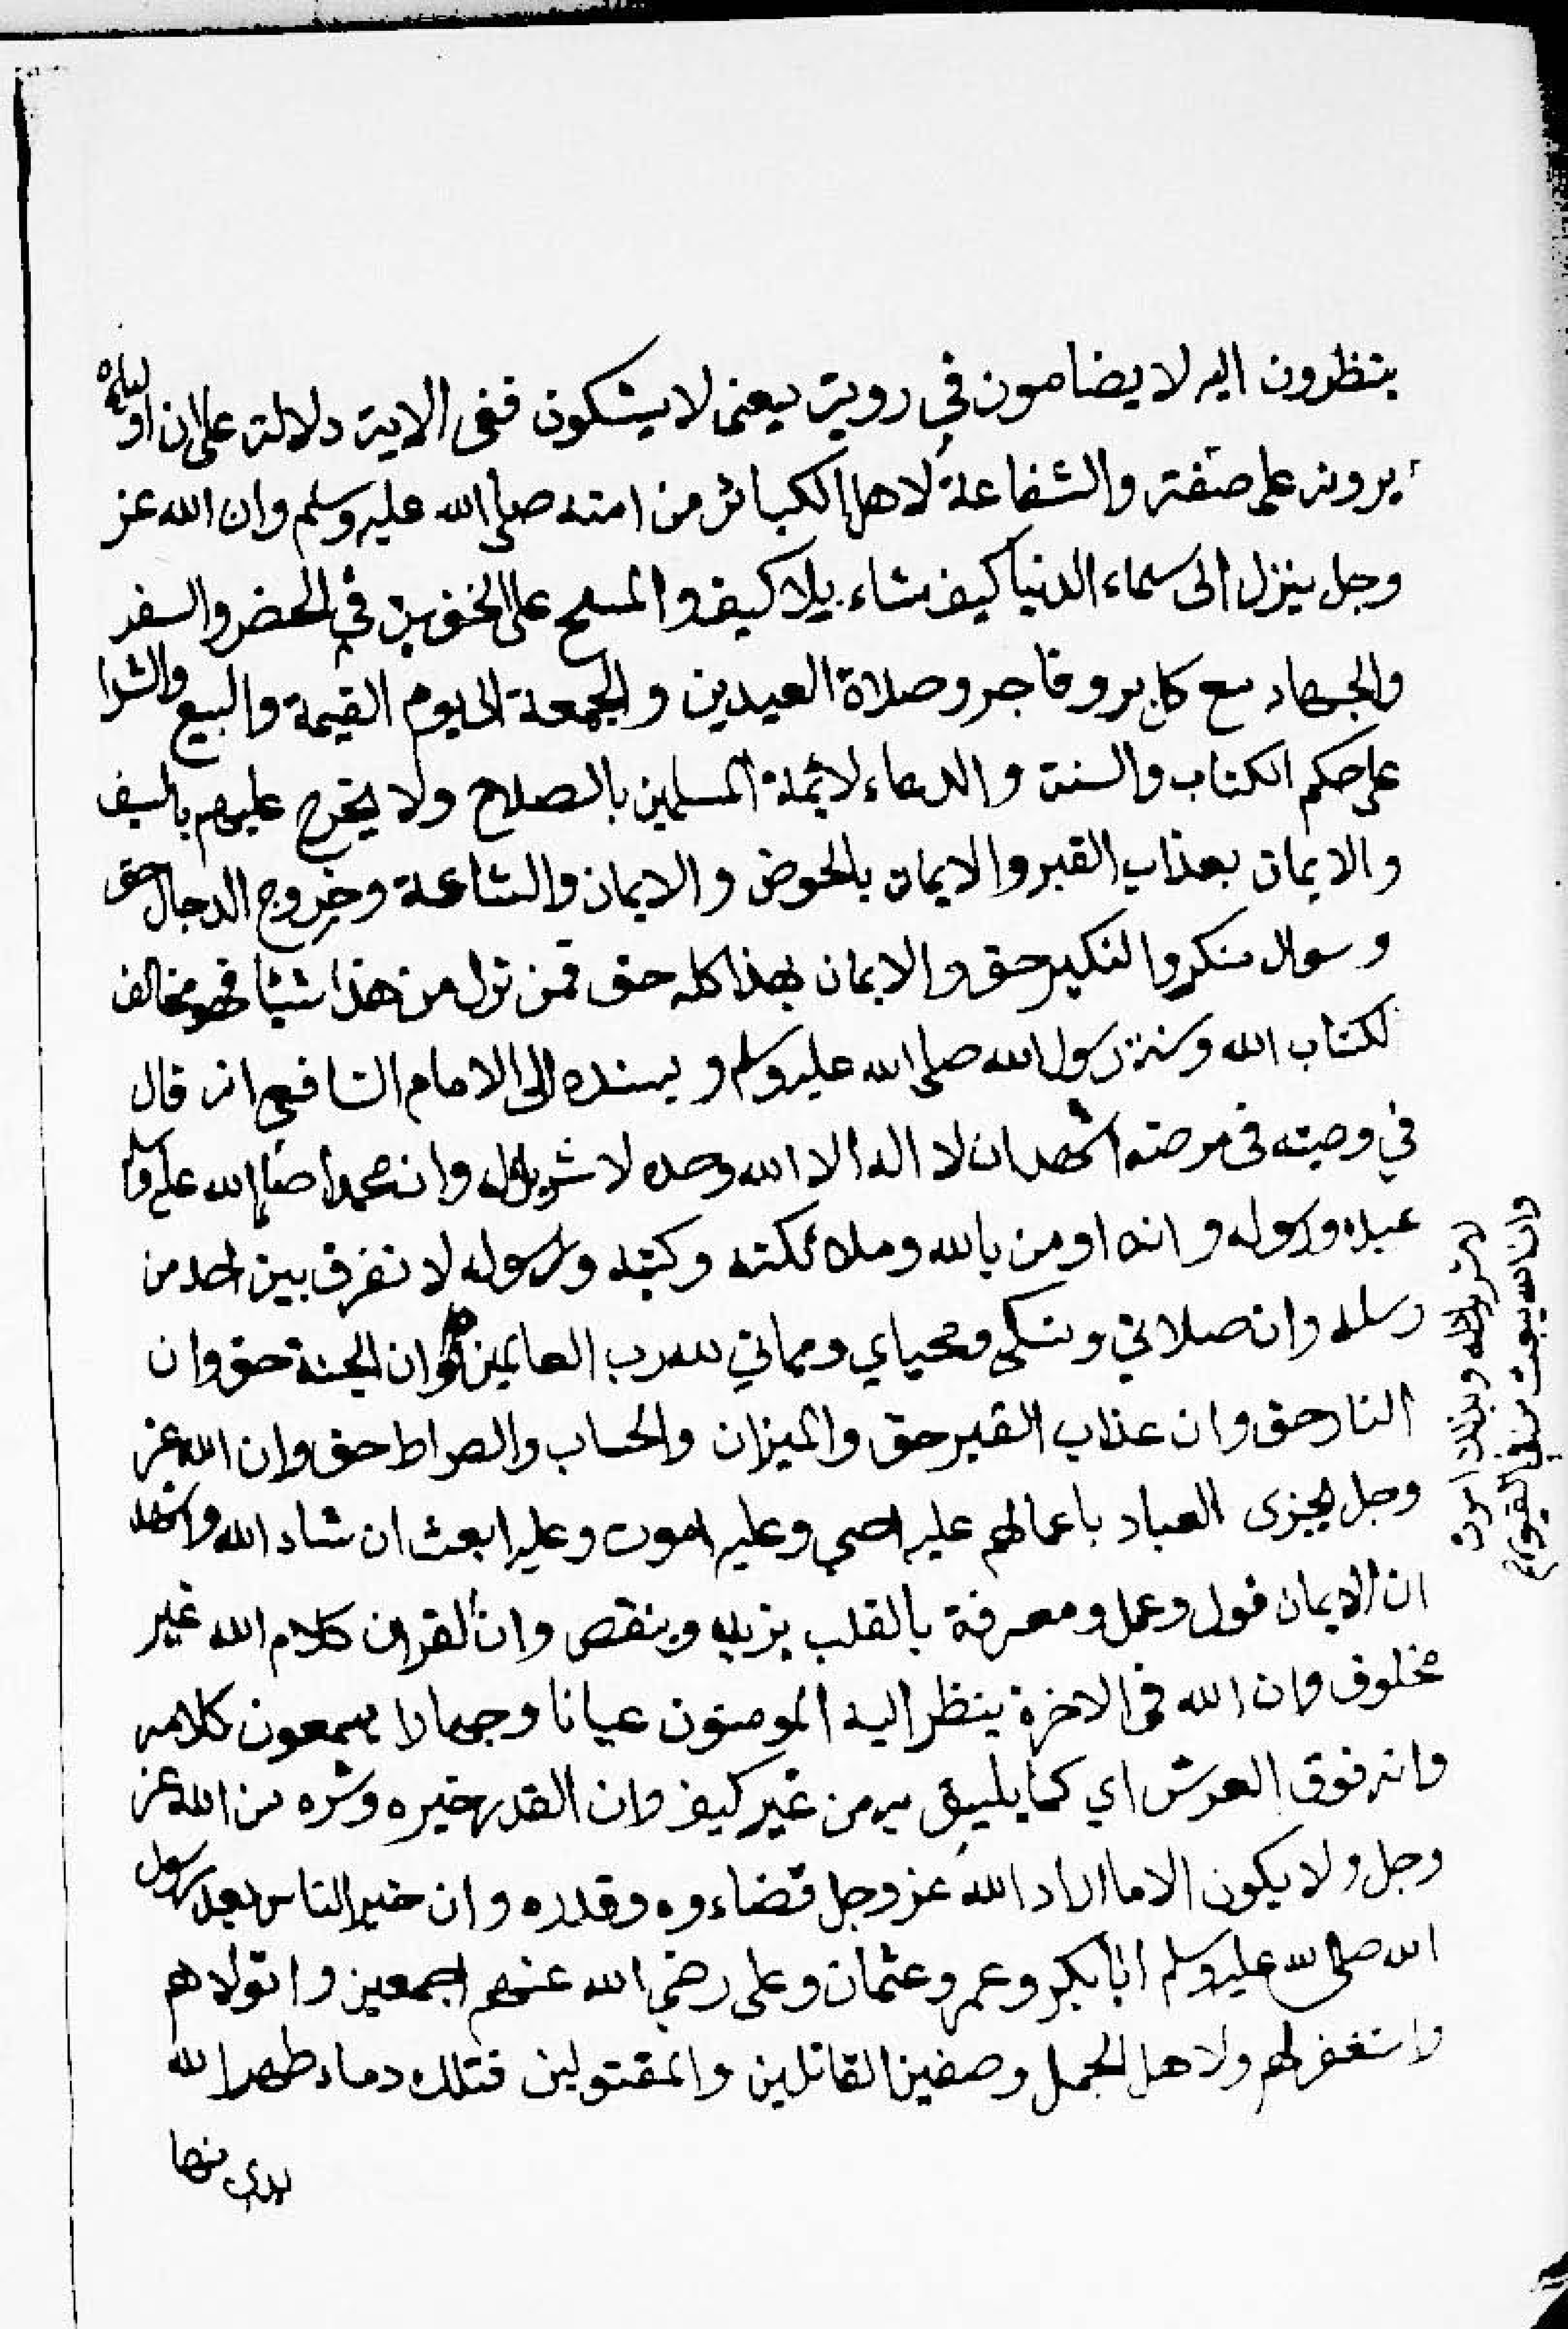 ينظرون اليه لا يضامون في روية يعنى لا يشكون ففى الاية دلالة على ان اولياءه
يرونه على صفته والشفاعة لاهل الكبائر من امته صلى الله عليه وسلم وان الله عز
وجل ينزل الى سماء الدنيا كيف شاء بلا كيف والمسح على الخفين في الحضر والسفر
والجهاد مع كل بر وفاجر وصلاة العيدين والجمعة الى يوم القيمة والبيع والشرا
على حكم الكتاب والسنة والدعاء لائمة المسلمين بالصلاح ولا يخرج عليهم بالسيف
والايمان بعذاب القبر والايمان بالحوض والايمان والشاعة وخروج الدجال حق
وسوال منكر والنكير حق والايمان بهذا كله حق فمن ترك من هذا شيئا فهو مخالف
لكتاب الله وسنة رسول الله صلى الله عليه وسلم وبسنده الى الامام الشافعي انه قال
في وصيته في مرضه اشهد ان لا اله الا الله وحده لا شريك له وان محمدا صلى الله عليه وسلم
عبده ورسوله وانه اومن بالله وملائكته وكتبه ورسوله لا نفرق بين احد من
رسله وان صلاتي ونسكى ومحياي ومماتي لله رب العالمين وان الجنة حق وان
النار حق وان عذاب القبر حق والميزان والحساب والصراط حق وان الله عز
وجل يجزى العباد باعمالهم عليه احيي وعليه اموت وعليه ابعث ان شاء الله واشهد
ان الايمان قول وعمل ومعرفة بالقلب يزيد وينقص وان القران كلام الله غير
مخلوق وان الله في الاخرة ينظر اليه المومنون عيانا وجهارا يسمعون كلامه
وانه فوق العرش اي كما يليق به من غير كيف وان القدر خيره وشره من الله عز
وجل ولا يكون الا ما اراد الله عز وجل قضاءوه وقدره وان خير الناس بعد رسول
الله صلى الله عليه وسلم ابابكر وعمر وعثمان وعلى رضي الله عنهم اجمعين واتولاهم
واستغفر لهم ولاهل الجمل وصفين القاتلين والمقتولين فتلك دماء طهر الله
يدي منها
لا شريك له وبذلك امرت
وان الله يبعث من في القبور